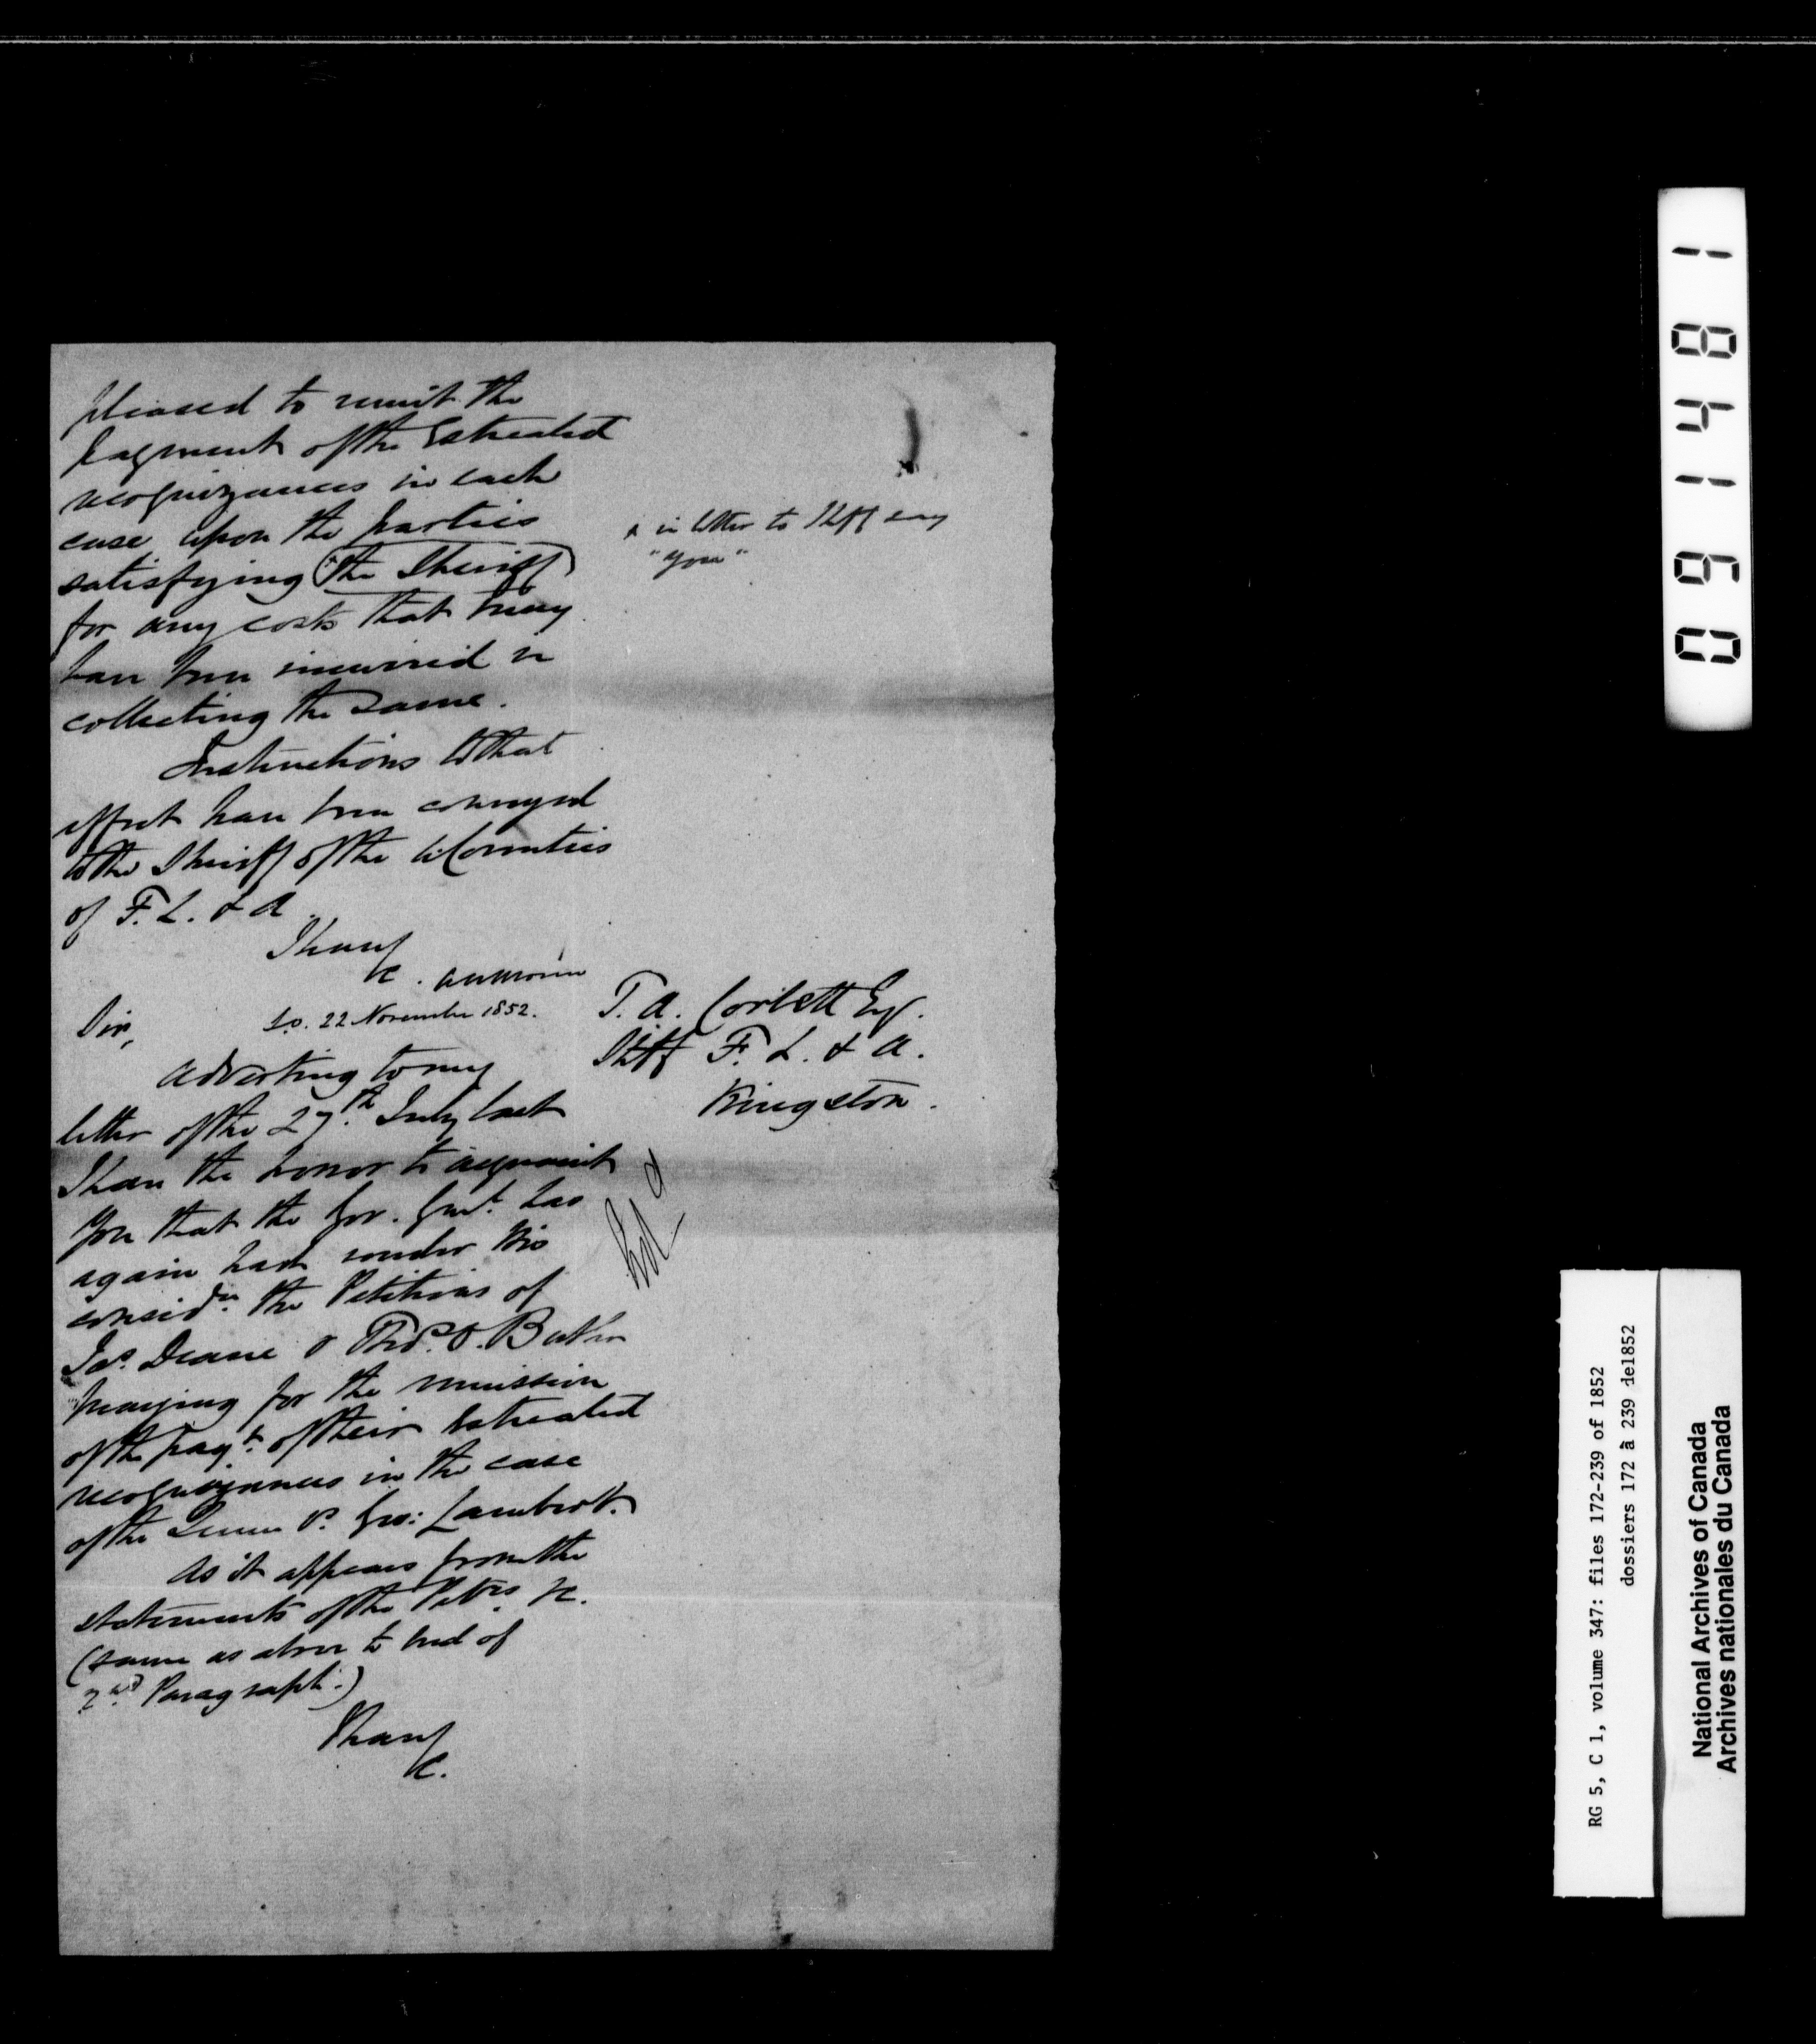 pleased to remit the
payment of the Estreated
recognizances in each
case upon the parties
satisfying (the Sheriff)
x in letter to Shff say
"you"
for any costs that may
have been incurred in
collecting the same.
Instructions to that
effect have been conveyed
to the Sheriff of the U Counties
of F. L. & A.
I have
&c. ANMorin
Sir,
S.O. 22 November 1852.
T. A. Corbett Esq.
Shff F. L. & A.
Kingston.
Adverting to my
letter of the 27th. July last
I have the honor to acquaint
you that the Gov. Genl. has
again had under His
considn. the Petitions of
Jas. Deane & Thos. O. Butler
praying for the remission
of the payt. of their Estreated
recognizances in the case
of the Queen v. Geo: Lambert.
As it appears from the
statements of the Petrs. &c.
(same as above to end of
2nd. Paragraph.)
I have
&c.
0 9 1 4 8 1
RG 5, C 1, volume 347: files 172-239 of 1852
dossiers 172 à 239 de1852
National Archives of Canada
Archives nationales du Canada